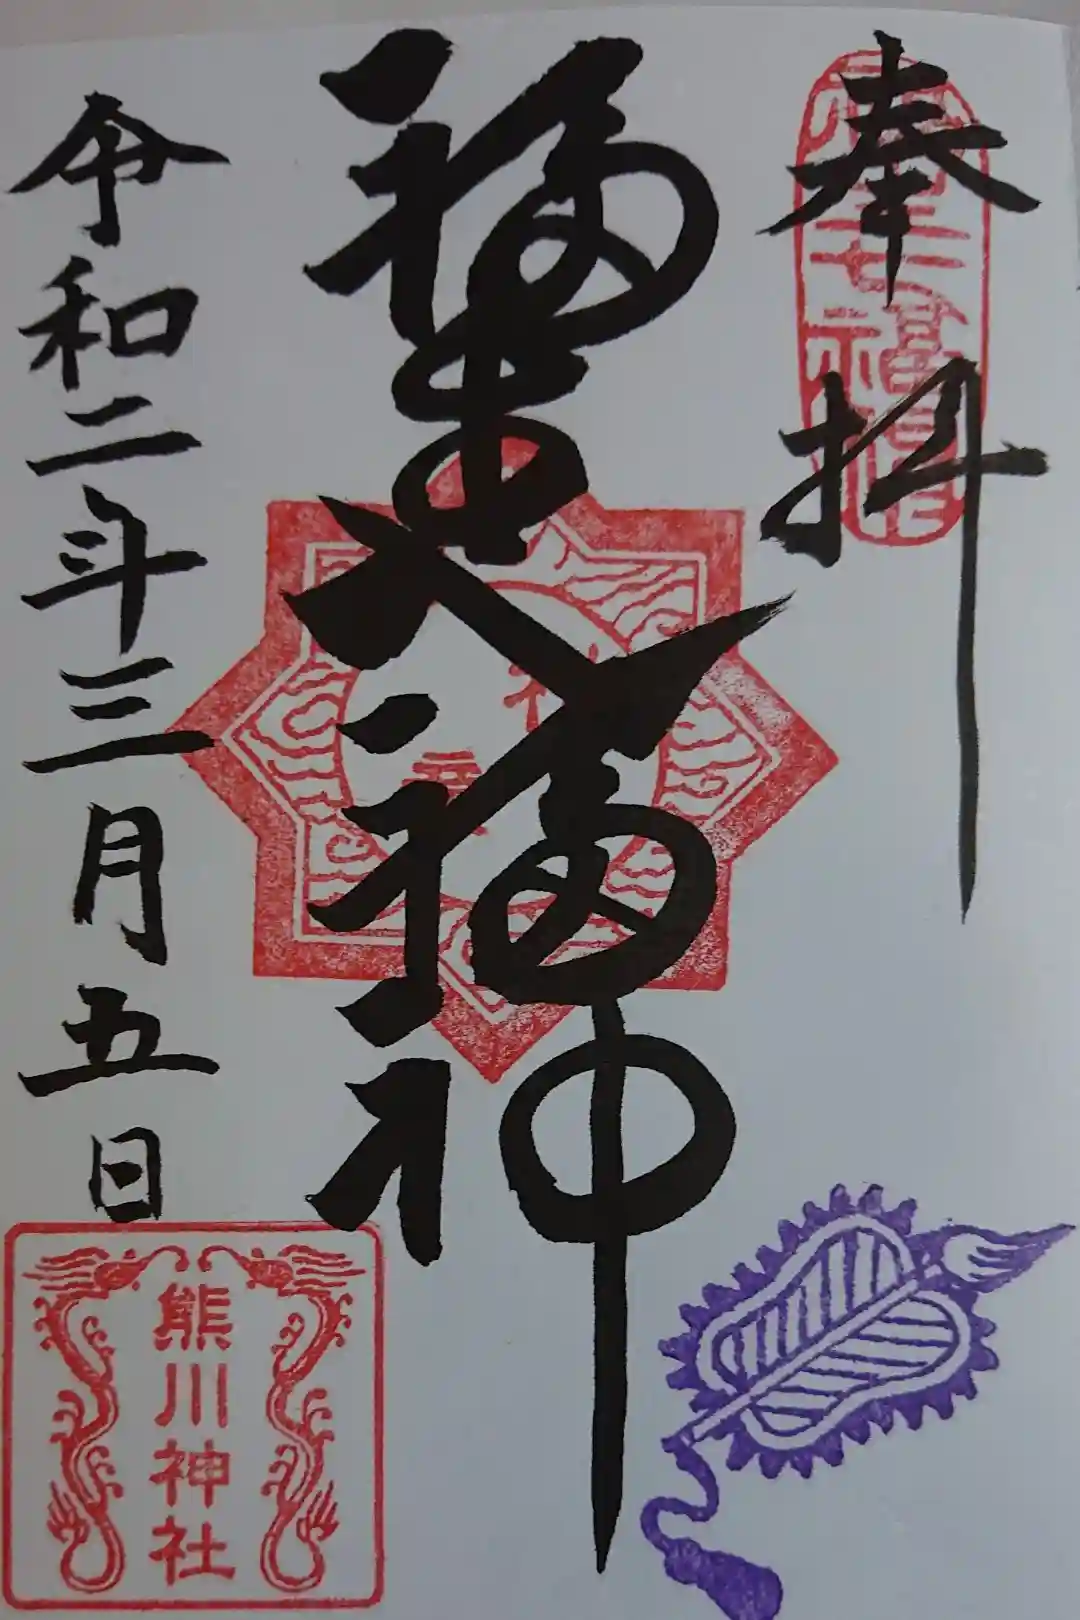 奉拝
福大福神
令和二年三月五日
熊川神社